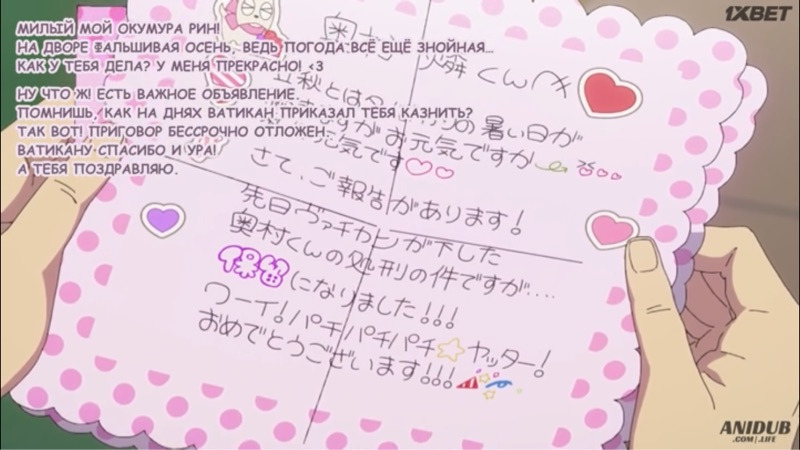 1XBET
МИЛЫЙ МОЙ ОКУМУРА РИН!
НА ДВОРЕ ФАЛЬШИВАЯ ОСЕНЬ, ВЕДЬ ПОГОДА ВСЁ ЕЩЁ ЗНОЙНАЯ...
КАК У ТЕБЯ ДЕЛА? У МЕНЯ ПРЕКРАСНО! <3
НУ ЧТО Ж! ЕСТЬ ВАЖНОЕ ОБЪЯВЛЕНИЕ.
ПОМНИШЬ, КАК НА ДНЯХ ВАТИКАН ПРИКАЗАЛ ТЕБЯ КАЗНИТЬ?
ТАК ВОТ! ПРИГОВОР БЕССРОЧНО ОТЛОЖЕН.
ВАТИКАНУ СПАСИБО И УРА!
А ТЕБЯ ПОЗДРАВЛЯЮ.
奥村 燐くんへ
立秋とは の暑い日が
すがお元気ですか
元気です♡♡
さて、ご報告があります!
先日ヴァチカンが下した
奥村くんの処刑の件ですが....
保留になりました!!!
ワーイ!パチパチパチ☆ヤッター!
おめでとうございます!!!
ANIDUB
.COM/.LIFE